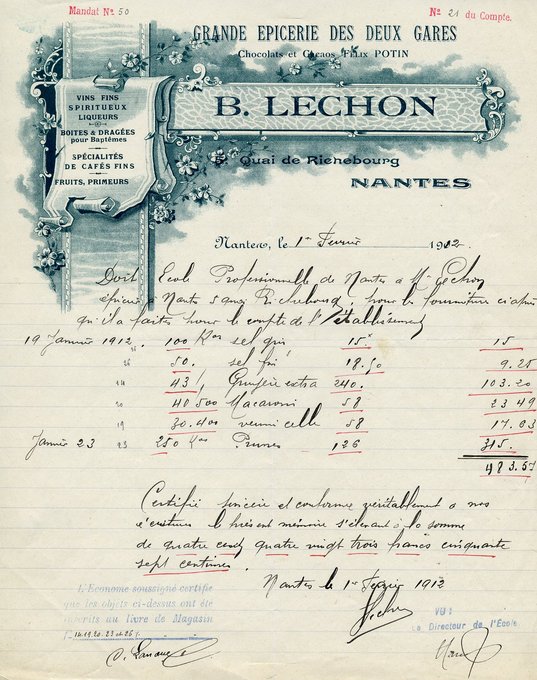 Mandat No 50
No 21 du Compte.
GRANDE EPICERIE DES DEUX GARES
Chocolats et Cacaos FÉLIX POTIN
B. LECHON
5, Quai de Richebourg
NANTES
VINS FINS
SPIRITUEUX
LIQUEURS
BOITES & DRAGÉES
pour Baptêmes
SPÉCIALITÉS
DE CAFÉS FINS
FRUITS, PRIMEURS
Nantes, le 1er Février 1912.
Doit Ecole Professionnelle de Nantes à Mr Lechon
épicier à Nantes 5 quai Richebourg, pour les fournitures ci après
qu'il a faites pour le compte de l'établissement
19 Janvier 1912. 100 Kos sel gris 15 15
26 50. sel fin 18.50 9.25
14 43 Gruyère extra 240. 103.20
20 40 500 Macaroni 58 23 49
19 30.400 vermicelle 58 17.03
Janvier 23 23 250 Kos Prunes 126 315.
483.57
Certifié sincère et conforme véritablement a nos
écritures le présent mémoire s'élevant à la somme
de quatre cent quatre vingt trois francs cinquante
sept centimes.
Nantes le 1er Février 1912
Lechon
L'Econome soussigné certifie
que les objets ci-dessus ont été
inscrits au livre de Magasin
14.19.20. 23 et 26
VU :
Le Directeur de l'École